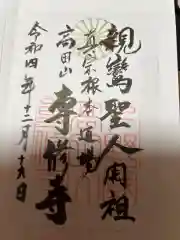 親鸞聖人開祖
真宗根本道場
高田山
専修寺
令和四年十二月十六日